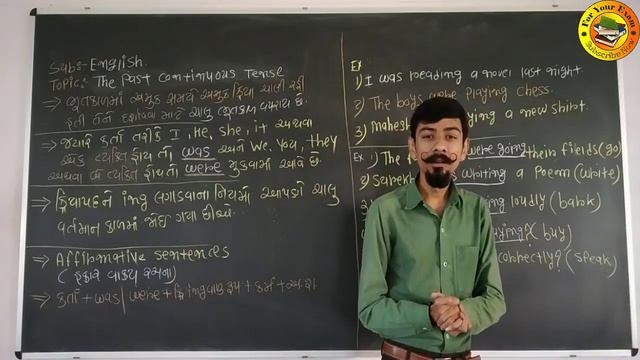 For Your Exam
Subscribe Now
Sub:- English.
Topic:- The Past Continuous Tense
⇒ ભૂતકાળમાં અમુક સમયે અમુક ક્રિયા ચાલી રહી
હતી તેને દર્શાવવા માટે ચાલુ ભૂતકાળ વપરાય છે.
⇒ જ્યારે કર્તા તરીકે I, He, she, it અથવા
એક વ્યક્તિ હોય તો was અને we, you, they
અથવા હોય તો were મુકવામાં આવે છે.
⇒ ક્રિયાપદને ing લગાડવાના નિયમો આપણે ચાલુ
વર્તમાન કાળમાં જોઇ ગયા છીએ.
⇒ Affirmative sentences
(હકાર વાક્ય રચના)
⇒ કર્તા + was / were + ક્રિ ing વાળુ રૂપ + કર્મ + અ.શ.
Ex:
1) I was reading a novel last night.
2) The boys were playing chess.
3) Mahesh ying a new shirt.
Ex. 1) The were going their fields (go)
2) Suresh writing a Poem (write)
ing loudly (bark)
uying? (buy)
correctly? (speak)